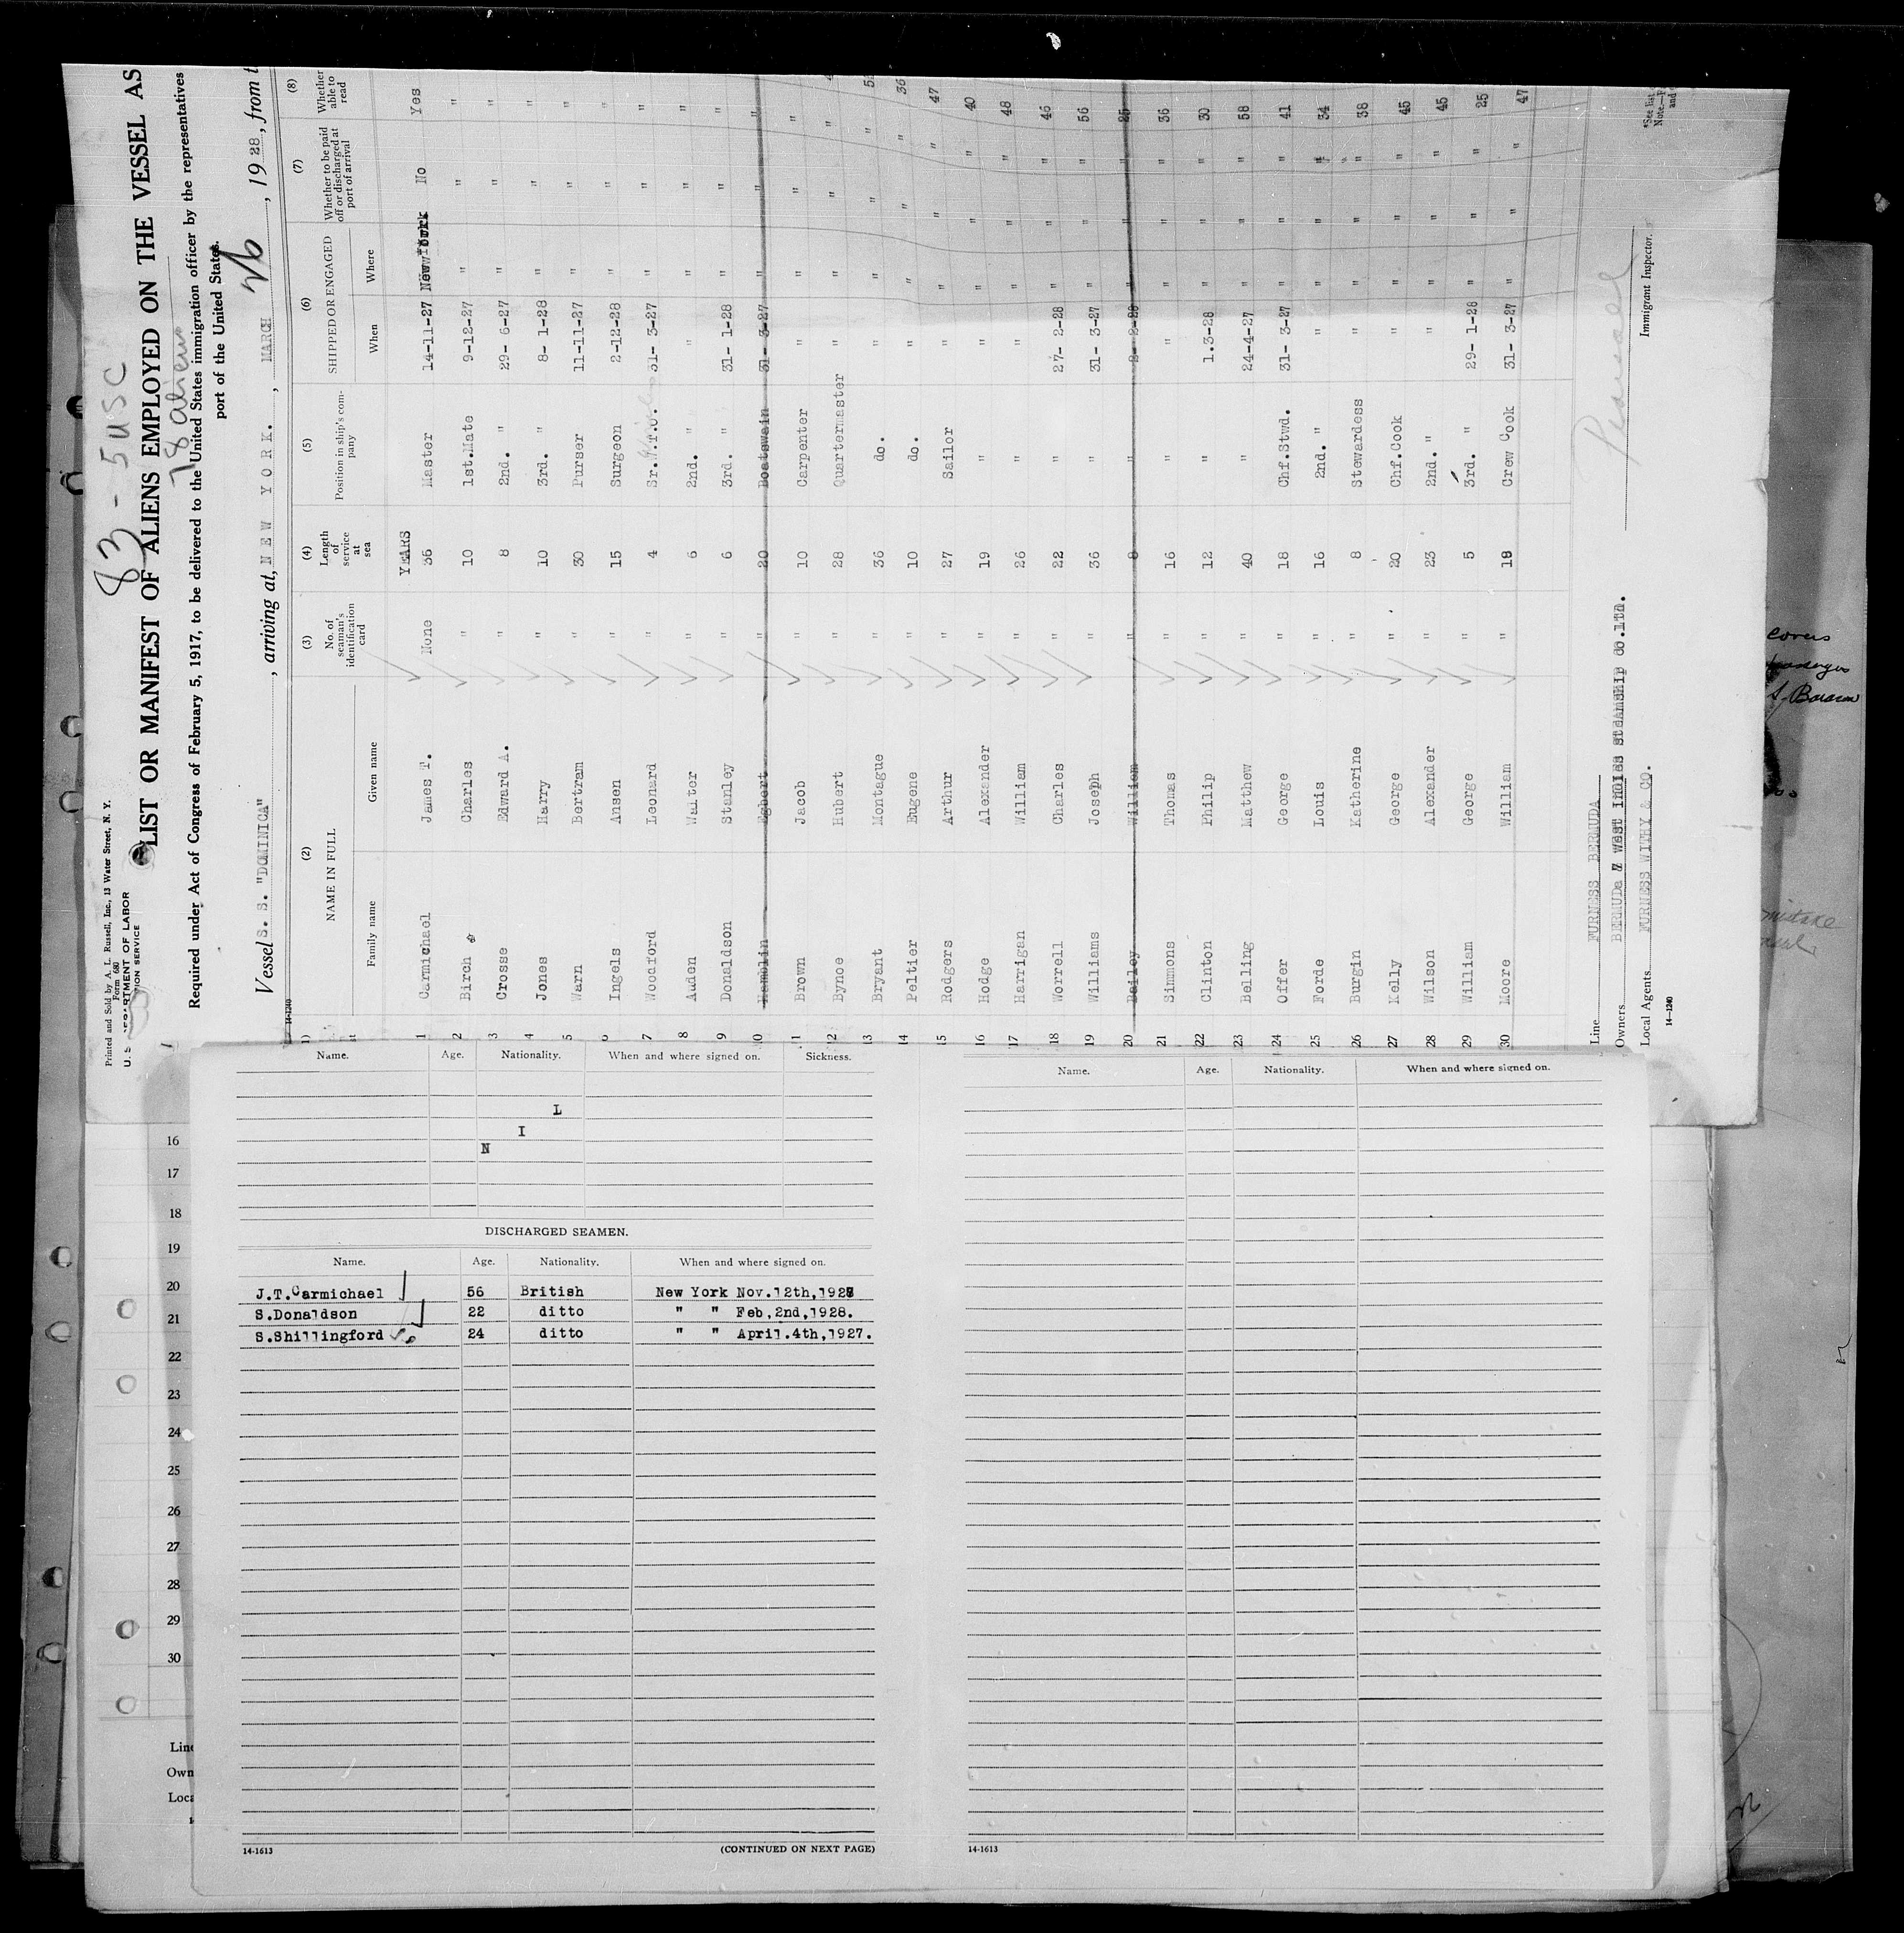 83 - 5 USC
78 aliens
Printed and Sold by A. L. Russell, Inc., 13 Water Street, N. Y.
Form 680
LIST OR MANIFEST OF ALIENS EMPLOYED ON THE VESSEL AS
Required under Act of Congress of February 5, 1917, to be delivered to the United States immigration officer by the representatives
port of the United States.
Vessel S. S. "DOMINICA" , arriving at, NEW YORK. , MARCH 26 , 1928, from t
(2) (3) (4) (5) (6) (7) (8)
NAME IN FULL No. of seaman's identification card Length of service at sea Position in ship's company SHIPPED OR ENGAGED Whether to be paid off or discharged at port of arrival Whether able to read
Family name Given name When Where
YEARS
1 Carmichael James T. None 36 Master 14-11-27 New York No Yes
2 Birch Charles " 10 1st.Mate 9-12-27 " " "
3 Crosse Edward A. " 8 2nd. " 29- 6-27 " " "
4 Jones Harry " 10 3rd. " 8- 1-28 " " "
5 Warn Bertram " 30 Purser 11-11-27 " " "
6 Ingels Ansen " 15 Surgeon 2-12-28 " " "
7 Woodford Leonard " 4 Sr.W.T.O. 31- 3-27 " " "
8 Auden Walter " 6 2nd. " " " " "
9 Donaldson Stanley " 6 3rd. " 31- 1-28 " " "
10 Hamblin Egbert " 20 Boatswain 31- 3-27 " " "
11 Brown Jacob " 10 Carpenter " " " "
12 Bynoe Hubert " 28 Quartermaster " " " "
13 Bryant Montague " 36 do. " " " "
14 Peltier Eugene " 10 do. " " " " 36
15 Rodgers Arthur " 27 Sailor " " " " 47
16 Hodge Alexander " 19 " " " " " 40
17 Harrigan William " 26 " " " " " 48
18 Worrell Charles " 22 " 27- 2-28 " " " 46
19 Williams Joseph " 36 " 31- 3-27 " " " 56
20 Bailey William " 8 " 2- 2-28 " " " 25
21 Simmons Thomas " 16 " " " " " 36
22 Clinton Philip " 12 " 1.3-28 " " " 30
23 Belling Matthew " 40 " 24-4-27 " " " 58
24 Offer George " 18 Chf.Stwd. 31- 3-27 " " " 41
25 Forde Louis " 16 2nd. " " " " " 34
26 Burgin Katherine " 8 Stewardess " " " " 38
27 Kelly George " 20 Chf.Cook " " " " 45
28 Wilson Alexander " 23 2nd. " " " " " 45
29 William George " 5 3rd. " 29- 1-28 " " " 25
30 Moore William " 18 Crew Cook 31- 3-27 " " " 47
Line FURNESS BERMUDA
Owners BERMUDA & West Indies Steamship Co.Ltd.
Local Agents FURNESS WITHY & CO.
Immigrant Inspector.
14-1240
covers
mistake
Name. Age. Nationality. When and where signed on. Sickness.
L
I
N
DISCHARGED SEAMEN.
Name. Age. Nationality. When and where signed on.
J.T.Carmichael 56 British New York Nov.12th,1927
S.Donaldson 22 ditto " " Feb,2nd,1928.
S.Shillingford 24 ditto " " April.4th,1927.
14-1613 (CONTINUED ON NEXT PAGE)
Name. Age. Nationality. When and where signed on.
14-1613
16
17
18
19
20
21
22
23
24
25
26
27
28
29
30
Line
Own
Loca